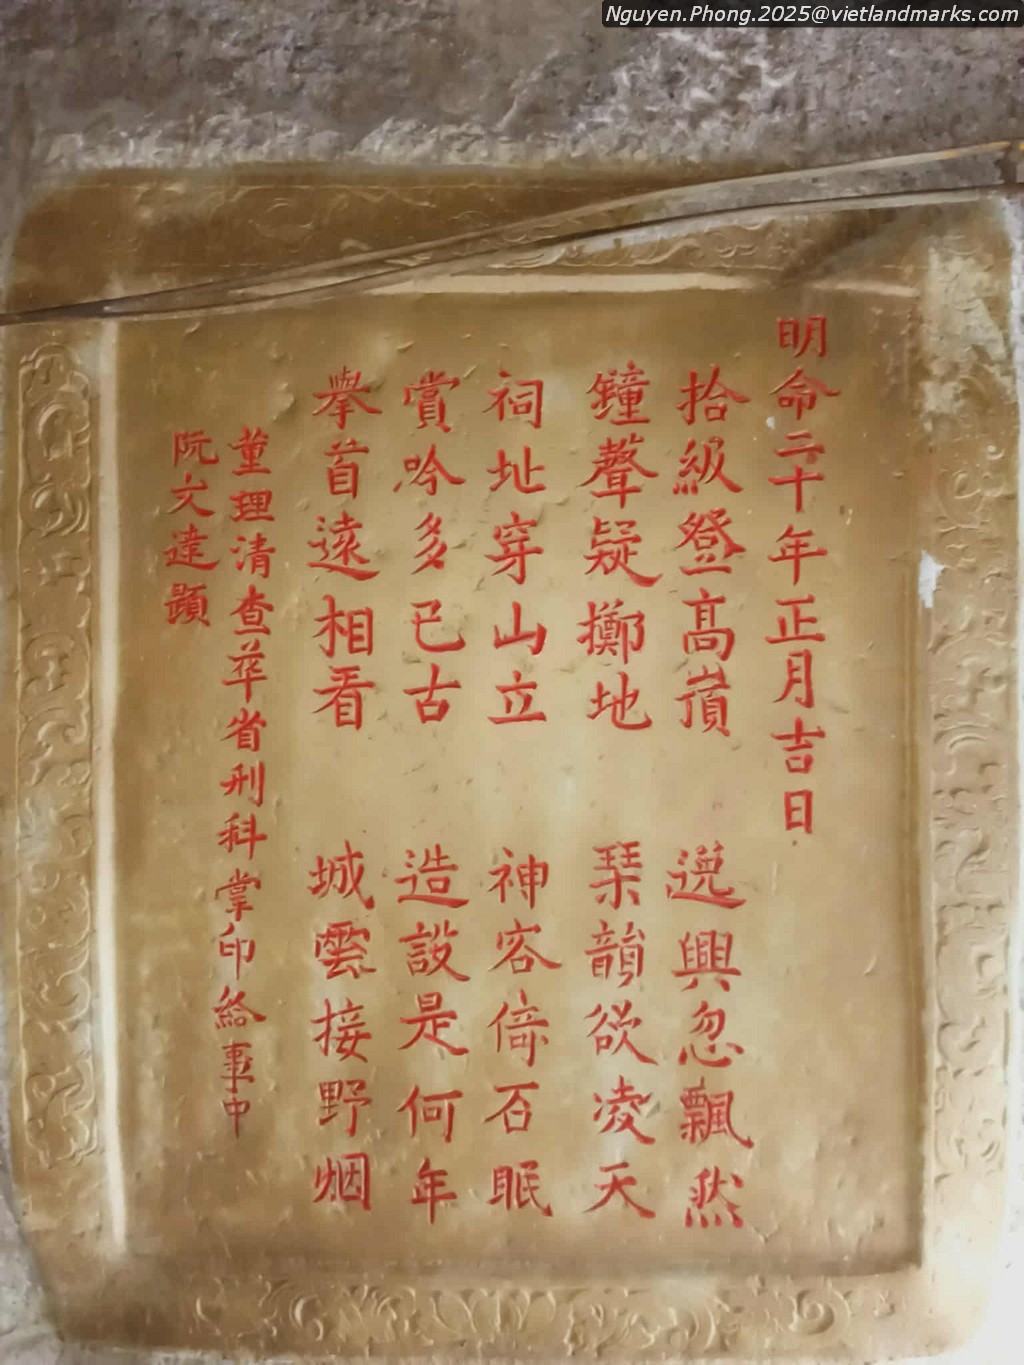 Nguyen.Phong.2025@vietlandmarks.com
明命二十年正月吉日
拾級登高嶺 逸興忽飄然
鐘聲疑擲地 琹韻欲凌天
祠址穿山立 神容倚石眠
賞吟多已古 造設是何年
舉首遠相看 城雲接野烟
董理清查莘省刑科掌印給事中
阮文達題